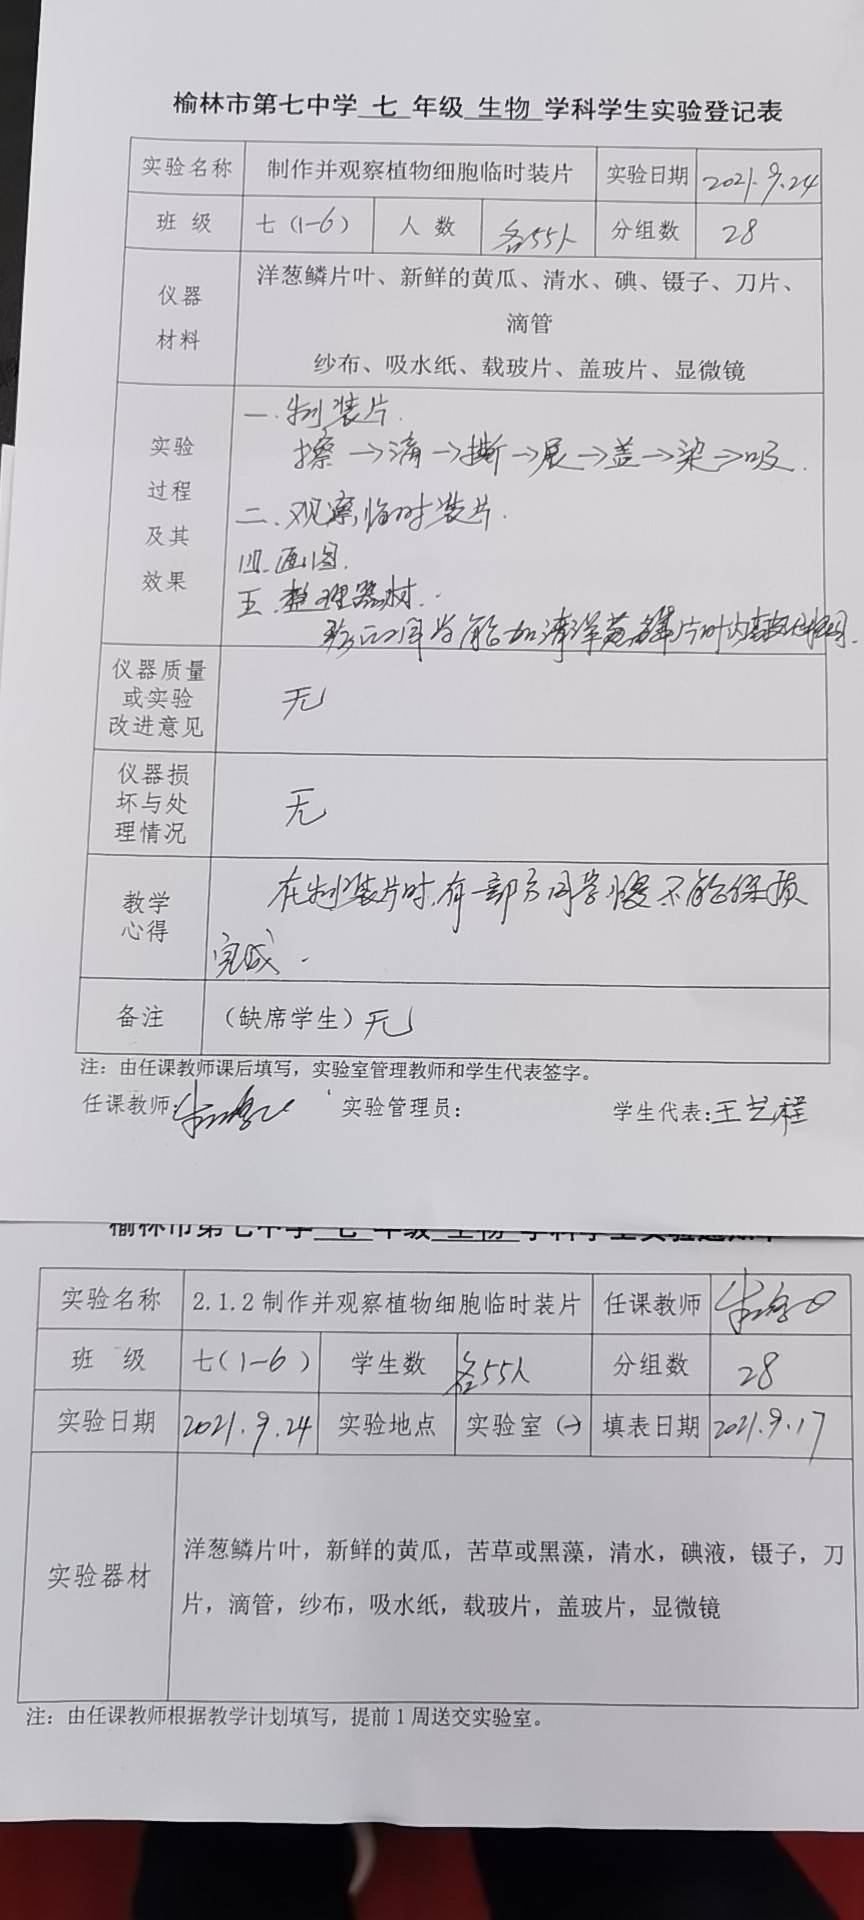 榆林市第七中学 七 年级 生物 学科学生实验登记表
实验名称 制作并观察植物细胞临时装片 实验日期 2021.9.24
班级 七(1-6) 人数 各55人 分组数 28
仪器
材料
洋葱鳞片叶、新鲜的黄瓜、清水、碘、镊子、刀片、
滴管
纱布、吸水纸、载玻片、盖玻片、显微镜
实验
过程
及其
效果
一.制装片.
擦→滴→撕→展→盖→染→吸.
二.观察临时装片.
四.画图.
五.整理器材.
洋葱鳞片叶内表皮细胞
仪器质量
或实验
改进意见
无
仪器损
坏与处
理情况
无
教学
心得
在制装片时,有一部分同学慢不能保质
完成.
备注 (缺席学生)无
注:由任课教师课后填写,实验室管理教师和学生代表签字。
任课教师: 实验管理员: 学生代表:王艺程
榆林市第七中学 七 年级 生物 学科学生实验通知单
实验名称 2.1.2制作并观察植物细胞临时装片 任课教师
班级 七(1-6) 学生数 各55人 分组数 28
实验日期 2021.9.24 实验地点 实验室(一) 填表日期 2021.9.17
实验器材
洋葱鳞片叶,新鲜的黄瓜,苦草或黑藻,清水,碘液,镊子,刀
片,滴管,纱布,吸水纸,载玻片,盖玻片,显微镜
注:由任课教师根据教学计划填写,提前1周送交实验室。